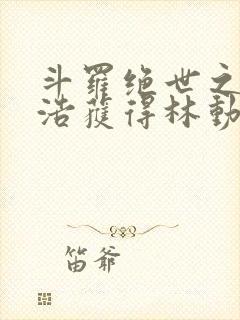 斗羅绝世之
浩獲得林動
笛爷